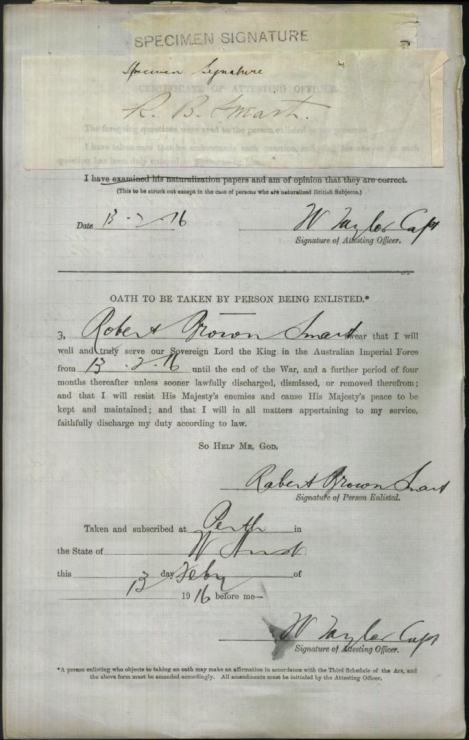 SPECIMEN SIGNATURE
Specimen Signature
R. B. Smart.
CERTIFICATE OF ATTESTING OFFICER
The foregoing questions were read to the person enlisted in my presence.
I have taken care that he understands each question, and
question has been duly entered
I have examined his naturalization papers and am of opinion that they are correct.
(This to be struck out except in the case of persons who are naturalized British Subjects.)
Date 13 . 2 . 16 W Taylor Capt
Signature of Attesting Officer.
OATH TO BE TAKEN BY PERSON BEING ENLISTED.*
I, Robert Brown Smart swear that I will
well and truly serve our Sovereign Lord the King in the Australian Imperial Force
from 13 . 2 . 16 until the end of the War, and a further period of four
months thereafter unless sooner lawfully discharged, dismissed, or removed therefrom;
and that I will resist His Majesty's enemies and cause His Majesty's peace to be
kept and maintained; and that I will in all matters appertaining to my service,
faithfully discharge my duty according to law.
SO HELP ME, GOD.
Robert Brown Smart
Signature of Person Enlisted.
Taken and subscribed at Perth in
the State of W Aust
this 13 day Feby of
1916 before me—
W Taylor Capt
Signature of Attesting Officer.
*A person enlisting who objects to taking an oath may make an affirmation in accordance with the Third Schedule of the Act, and
the above form must be amended accordingly. All amendments must be initialed by the Attesting Officer.